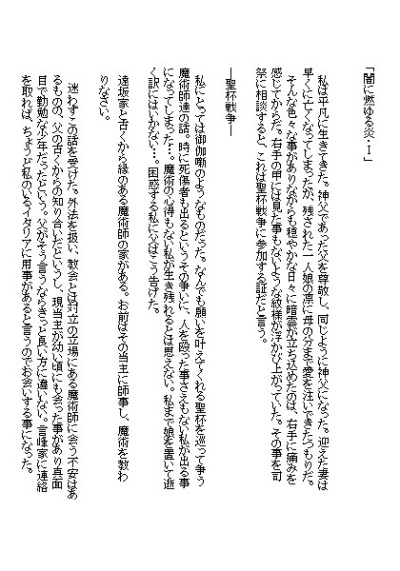 「闇に燃ゆる炎・Ⅰ」
　私は平凡に生きてきた。神父であった父を尊敬し、同じように神父になった。迎えた妻は
早くに亡くなってしまったが、残された一人娘の凛に母の分まで愛を注いできたつもりだ。
　そんな色々な事がありながらも穏やかな日々に暗雲が立ち込めたのは、右手に痛みを
感じてからだ。右手の甲には見た事もないような紋様が浮かび上がっていた。その事を司
祭に相談すると、これは聖杯戦争に参加する証だと言う。
―聖杯戦争―
　私にとっては御伽噺のようなものだった。なんでも願いを叶えてくれる聖杯を巡って争う
魔術師達の話。時に死傷者も出るというその争いに、人を殴った事さえもない私が出る事
になってしまった…。魔術の心得もない私が生き残れるとは思えない。私まで娘を置いて逝
く訳にはいかない…。困惑する私に父はこう告げた。
遠坂家と古くから縁のある魔術師の家がある。お前はその当主に師事し、魔術を教わ
りなさい。
　迷わずこの話を受けた。外法を扱い、教会とは対立の立場にある魔術師に会う不安はあ
るものの、父の古くからの知り合いだというし、現当主が幼い頃にも会った事があり真面
目で勤勉な少年だったという。父がそう言うならきっと良い方に違いない。言峰家に連絡
を取れば、ちょうど私のいるイタリアに用事があると言うのでお会いする事になった。